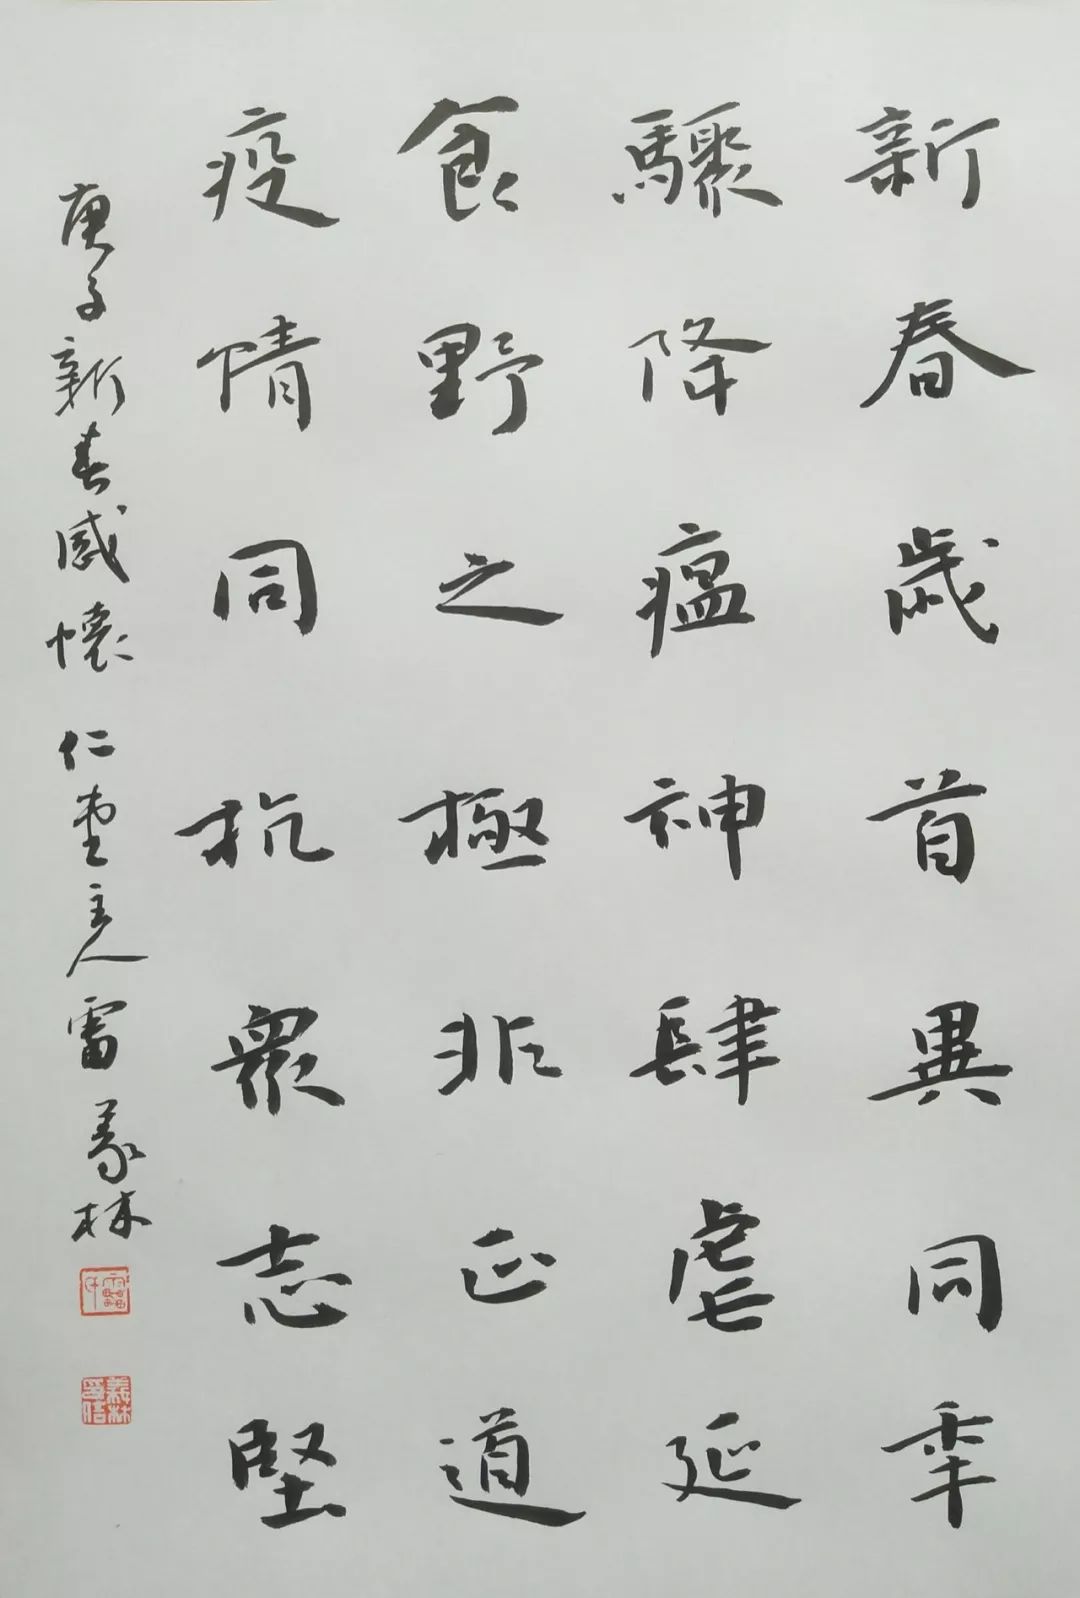 新春歲首異同年
驟降瘟神肆虐延
食野之極非正道
疫情同抗眾志堅
庚子新春感懷 仁堂主人雷義林
雷氏
義林書信